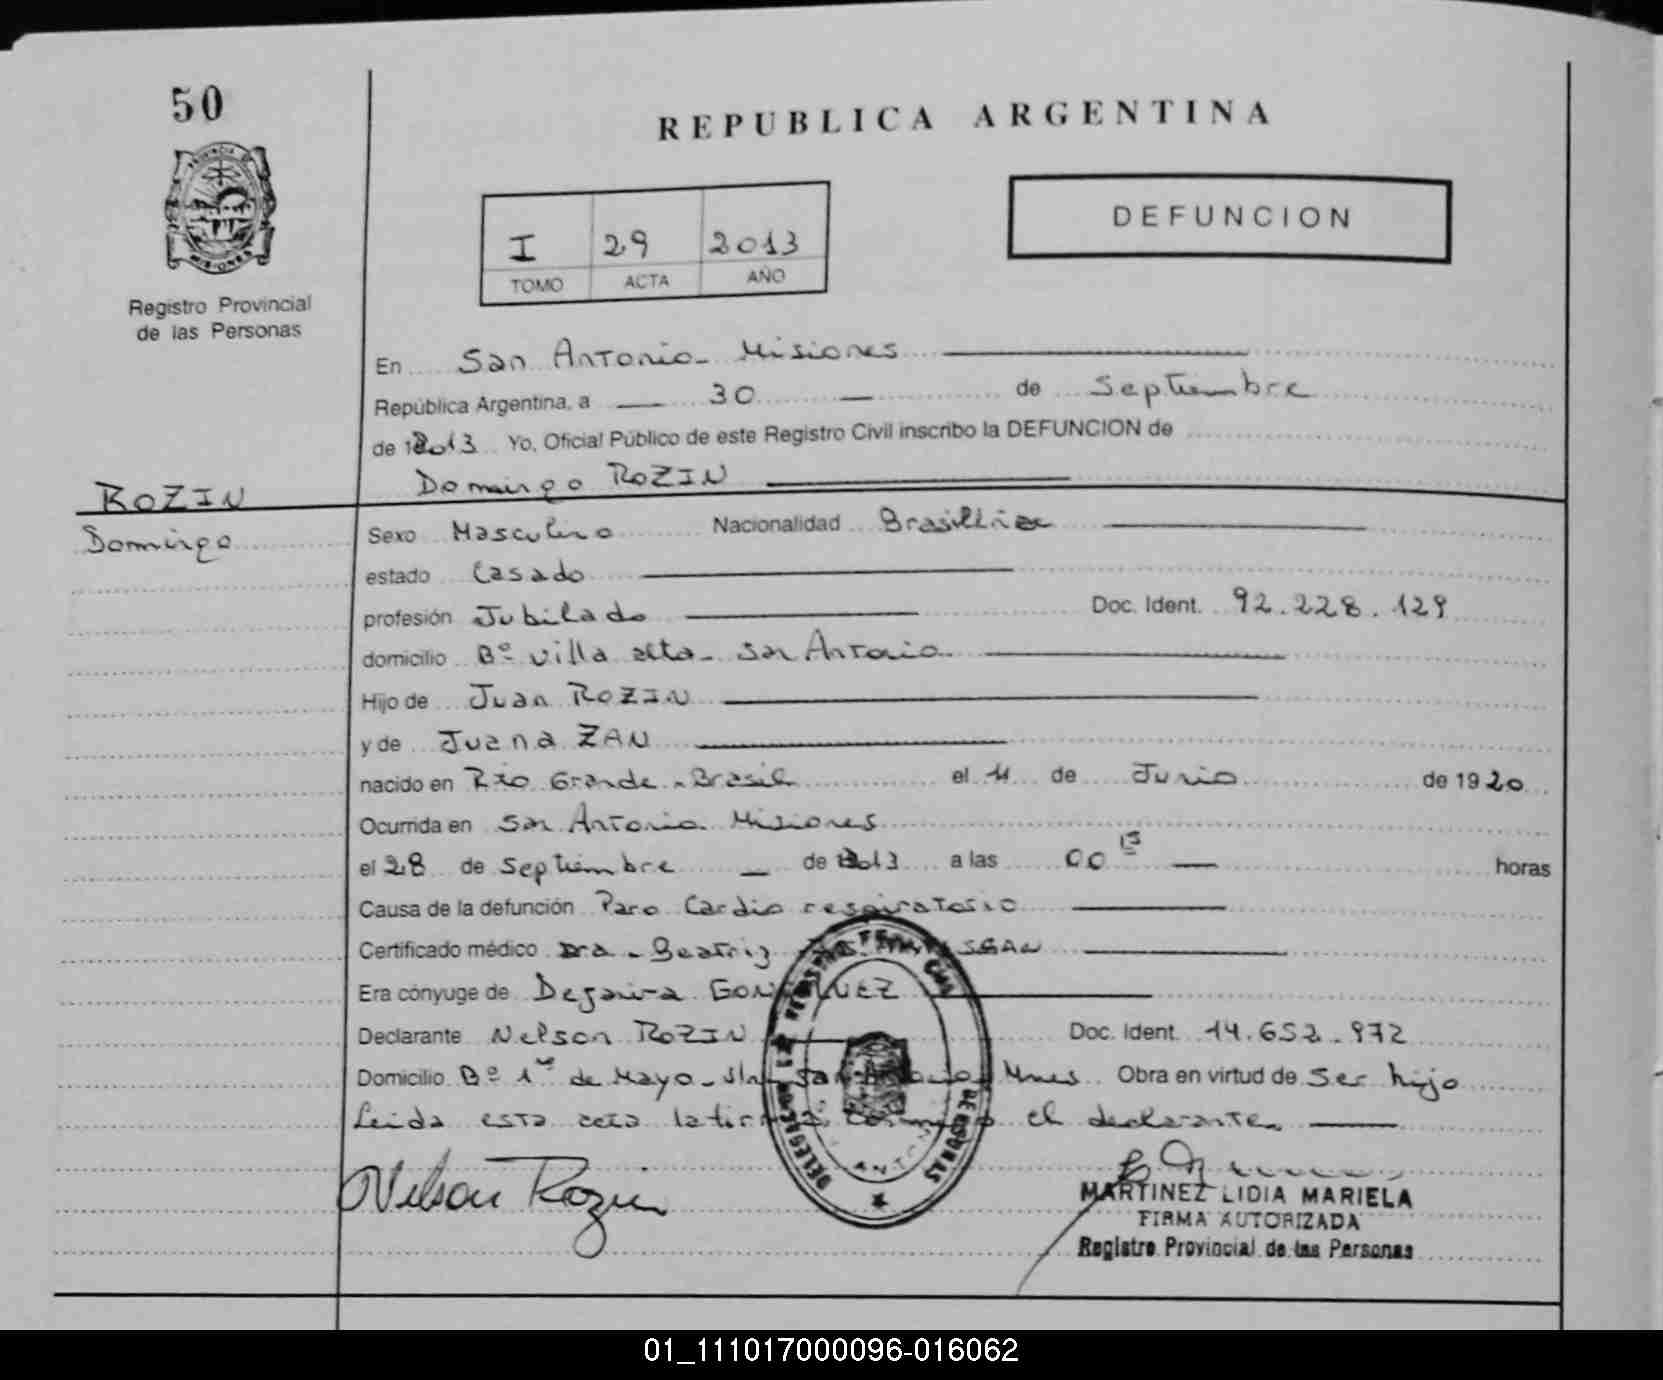 50
REPUBLICA ARGENTINA
PROVINCIA DE
MISIONES
DEFUNCION
I 29 2013
TOMO ACTA AÑO
Registro Provincial
de las Personas
En San Antonio - Misiones
República Argentina, a 30 de Septiembre
de 2013 Yo, Oficial Público de este Registro Civil inscribo la DEFUNCION de
ROZIN
Domingo ROZIN
Domingo
Sexo Masculino Nacionalidad
estado Casado
profesión Jubilado Doc. Ident. 92.228.129
domicilio Bº Villa alta - San Antonio
Hijo de Juan ROZIN
y de Juana ZAN
nacido en Río Grande - Brasil el 11 de Junio de 1920
Ocurrida en San Antonio Misiones
el 28 de Septiembre de 2013 a las 00 15 horas
Causa de la defunción Paro Cardio respiratorio
Certificado médico Dra - Beatriz
Era cónyuge de Dejanira
Declarante Nelson ROZIN Doc. Ident. 14.652.972
Domicilio Bº 1º de Mayo - San Antonio Mnes Obra en virtud de Ser hijo
Leida esta acta la firma conmigo el declarante
Nelson Rozin
MARTINEZ LIDIA MARIELA
FIRMA AUTORIZADA
Registro Provincial de las Personas
01_111017000096-016062